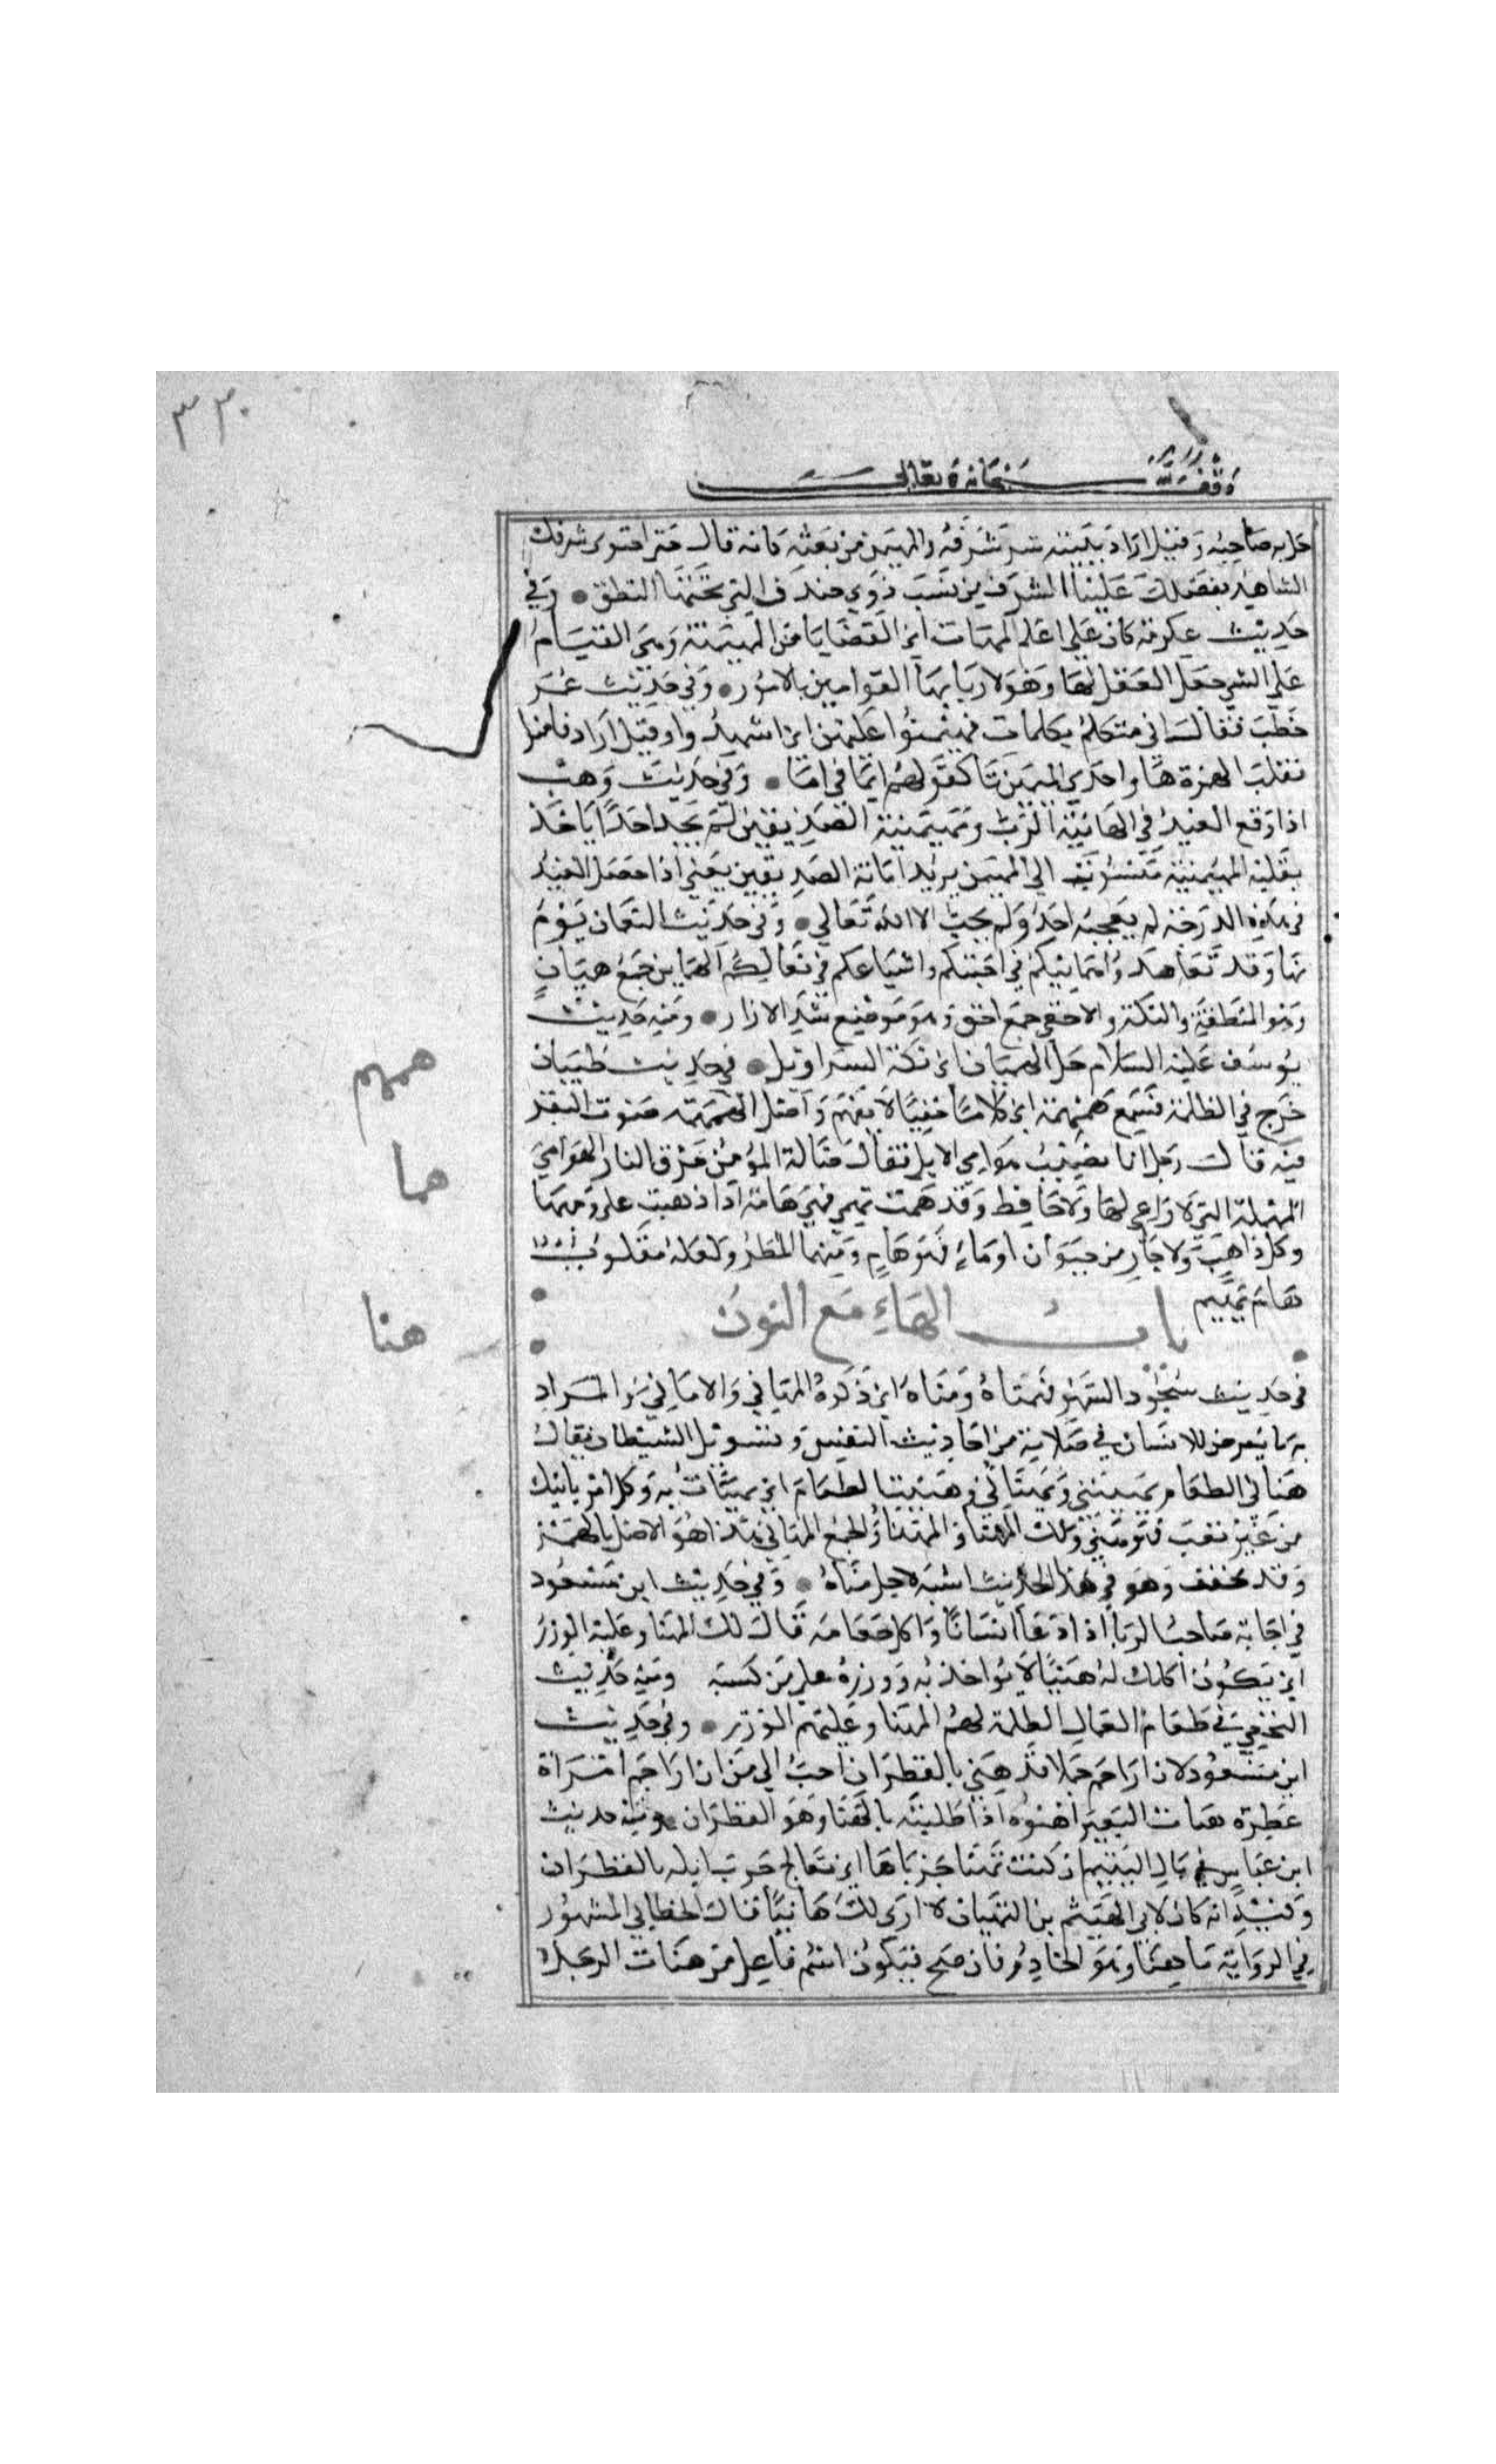 ٣٣٠
وقف لله سبحانه وتعالى
حل به صاحبه وقيل اراد ببيته شرفه والمهيمن من نعته كانه قال حتى احتوى شرفك
الشاهد بفضلك علينا الشرف من نسب ذوي خندف التي تحتها النطق وفي
حديث عكرمة كان علي اعلم بالمهيمنات اي القضايا من الهيمنة وهي القيام
على الشي جعل الفعل لها وهو لاربابها القوامين بالامور وفي حديث عمر
خطب فقال اني متكلم بكلمات فهيمنوا عليهن اي اشهدوا وقيل اراد فامنوا
فقلب الهمزة هاء واحدى الميمين ياء كقولهم ايما في اما وفي حديث وهب
اذا وقع العبد في الهانية الرب ومهيمنية الصديقين لم يجد احدا ياخذ
بقلبه المهيمنية منسوب الي المهيمن يريد امانة الصديقين يعني اذا حصل العبد
في هذه الدرجة لم يعجبه احد ولم يحب الا الله تعالي وفي حديث النعمان يوم
نهاوند تعاهدوا هماينكم في احقيكم واشساعكم في نعالكم الهماين جمع هميان
وهو المنطقة والتكة والاحقي جمع احق وهو موضع شد الازار ومنه حديث
يوسف عليه السلام حل الهميان اي تكة السراويل في حديث ظبيان
خرج في الظلمة فسمع همهمة اي كلاما خفيا لا يفهم واصل الهمهمة صوت البقر
فيه قال رجل انا نصيب هوامي الابل فقال ضالة المؤمن حرق النار الهوامي
المهملة التي لا راعي لها ولا حافظ وقد همت تهمي فهي هامية اذا ذهبت على وجهها
وكل ذاهب ولا جار من حيوان او ماء فهو هام ومنه هما المطر ولعله مقلوب
هام يهيم
باب الهاء مع النون
في حديث سجود السهو فهناه ومناه اي ذكره المهاني والاماني والمراد
به ما يعرض للانسان في صلاته من احاديث النفس وتسويل الشيطان يقال
هناني الطعام يهنيني ويهناني وهنيت الطعام اي تهنات به وكل امر ياتيك
من غير تعب فهو هني ولك المهنا والمهنا والجمع المهاني هذا هو الاصل بالهمز
وقد يخفف وهو في هذا الحديث اشبه لاجل مناه وفي حديث ابن مسعود
في اجابة صاحب الربا اذا دعا انسانا واكل طعامه قال لك المهنا وعليه الوزر
اي يكون اكلك له هنيا لا تواخذ به ووزره علي من كسبه ومنه حديث
النخعي في طعام العمال الظلمة لهم المهنا وعليهم الوزر وفي حديث
ابن مسعود لان ازاحم جملا قد هني بالقطران احب الي من ان ازاحم امراة
عطرة هنات البعير اهنوه اذا طليته بالهنا وهو القطران ومنه حديث
ابن عباس في مال اليتيم ان كنت تهنا جرباها اي تعالج جرب ابله بالقطران
وفيه انه كان لابي الهيثم بن التيهان لا اري لك هانيا قال الخطابي المشهور
في الرواية ماهنا وهو الخادم فان صح فيكون اسم فاعل من هنات الرجل
همهم
هما
هنا